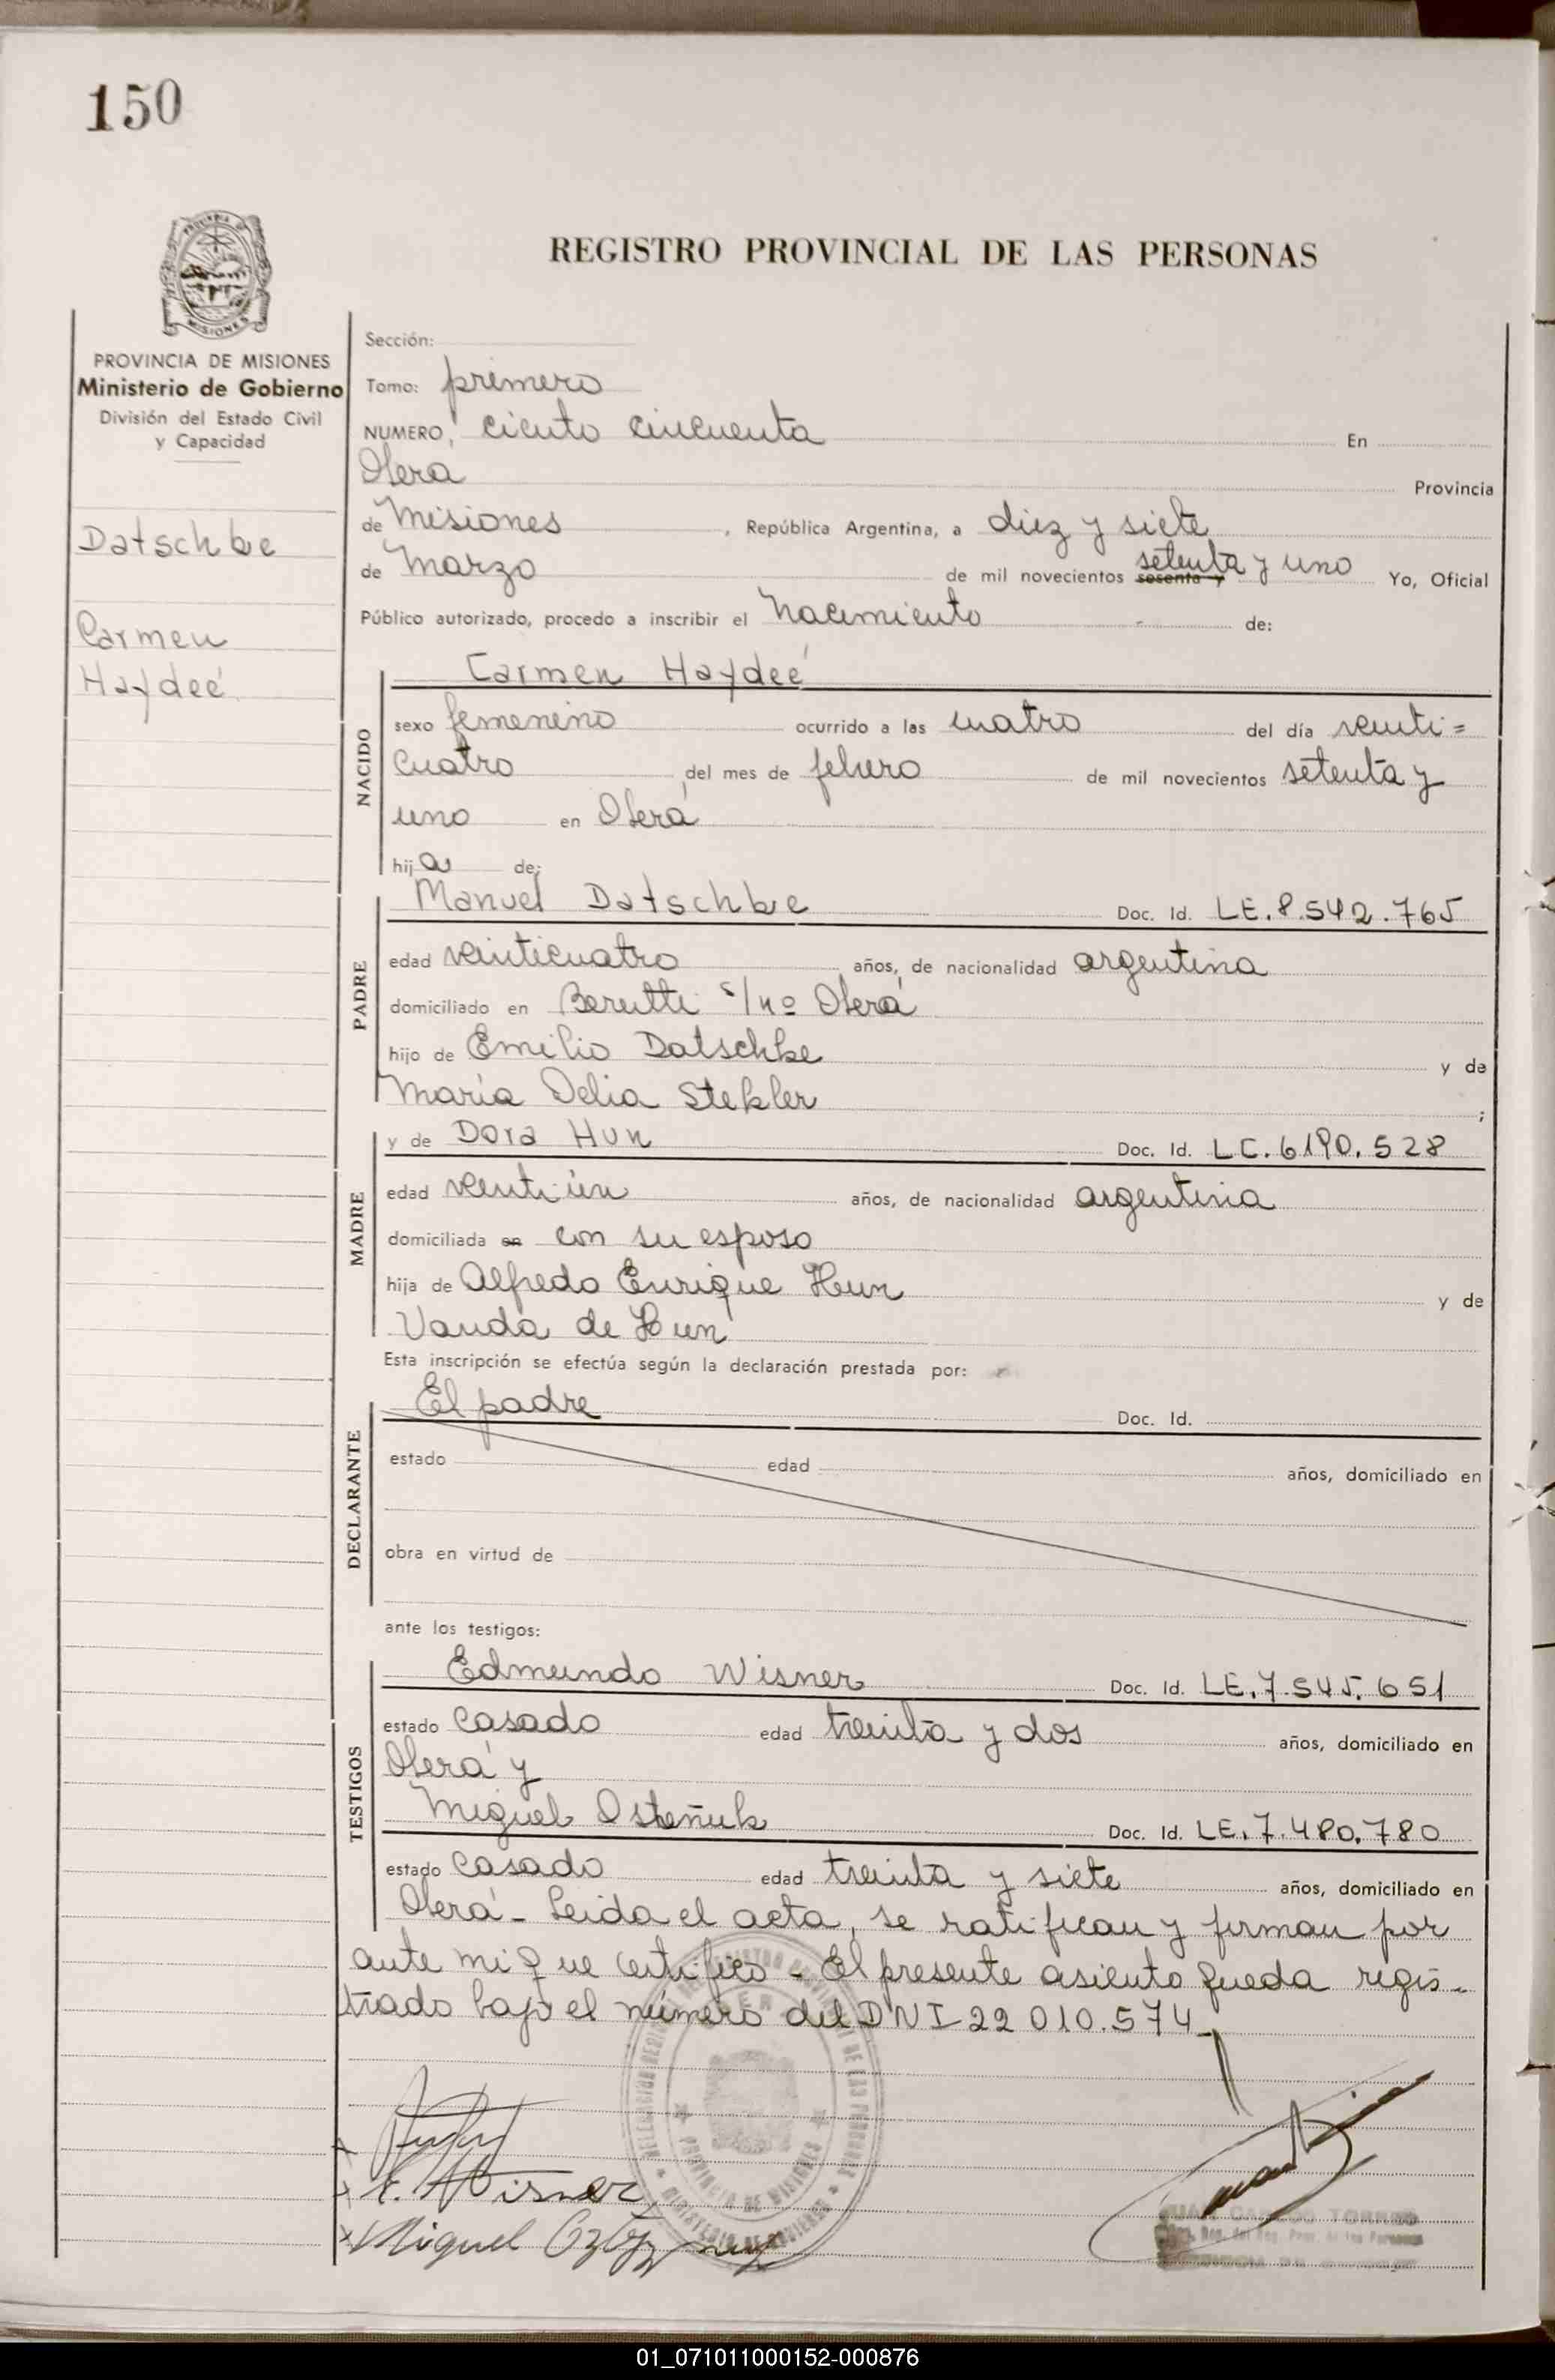 150
PROVINCIA DE MISIONES
Ministerio de Gobierno
División del Estado Civil
y Capacidad
Datschke
Carmen
Haydeé
REGISTRO PROVINCIAL DE LAS PERSONAS
Sección:
Tomo: primero
NUMERO, ciento cincuenta En
Oberá Provincia
de Misiones, República Argentina, a diez y siete
de Marzo de mil novecientos sesenta y setenta y uno Yo, Oficial
Público autorizado, procedo a inscribir el Nacimiento de:
Carmen Haydeé
NACIDO
sexo femenino ocurrido a las cuatro del día veinti=
cuatro del mes de febrero de mil novecientos setenta y
uno en Oberá
hija de:
PADRE
Manuel Datschke Doc. Id. LE. 8.542.765
edad veinticuatro años, de nacionalidad argentina
domiciliado en Berutti s/nº Oberá
hijo de Emilio Datschke y de
María Delia Stekler ;
MADRE
y de Dora Hun Doc. Id. LC. 6190.528
edad veintiún años, de nacionalidad argentina
domiciliada en con su esposo
hija de Alfredo Enrique Hun y de
Vanda de Hun
Esta inscripción se efectúa según la declaración prestada por:
DECLARANTE
El padre Doc. Id.
estado edad años, domiciliado en
obra en virtud de
ante los testigos:
TESTIGOS
Edmundo Wisner Doc. Id. LE. 7.545.651
estado casado edad treinta y dos años, domiciliado en
Oberá y
Miguel Ostañuk Doc. Id. LE. 7.480.780
estado casado edad treinta y siete años, domiciliado en
Oberá - Leida el acta, se ratifican y firman por
ante mi que certifico - El presente asiento queda regis-
trado bajo el número del DNI 22 010.574
E. Wisner
Miguel
JUAN CARLOS TORRES
PROVINCIA DE MISIONES
MINISTERIO DE GOBIERNO
01_071011000152-000876